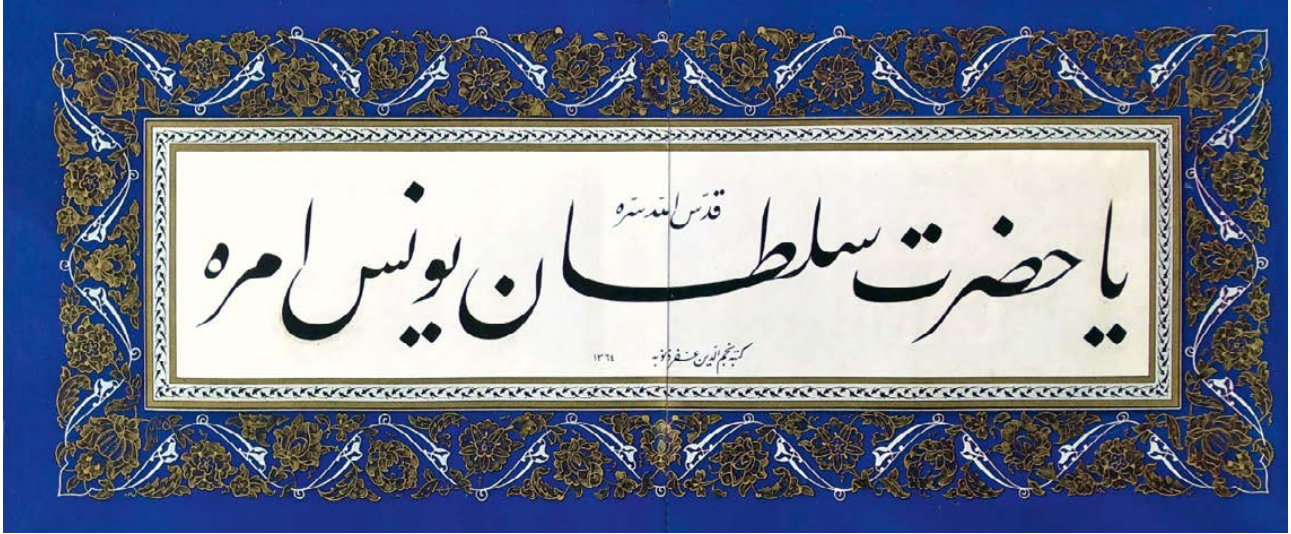 قدّس الله سرّه
يا حضرت سلطان يونس امره
كتبه نجم الدّين غفر ذنوبه ١٣٦٤